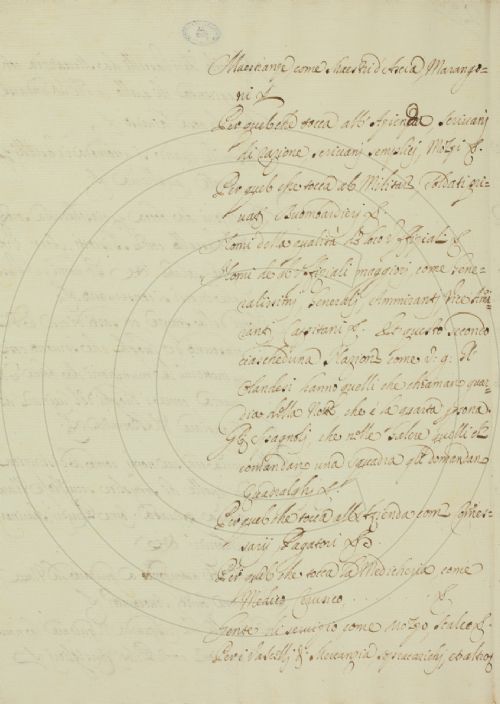 Maestranze come Maestri d'Ascia, Marango-
ni &.
Per quel che tocca all' Azienda Scrivani
di razione scrivani semplici, Mozzi &.
Per quel che tocca al Militar Soldati pri-
vati Buombardieri &.
Nomi della qualità
Nomi de gl' offitiali maggiori, come Gene-
ralissimi Generali, Ammiranti, Vice Ami-
ranti Capitani &. et questo secondo
ciascheduna Nazione come v. g. Gl'
Olandesi hanno quelli che chiamano guar-
dia della Notte che è la quarta persona.
Gli Spagnoli, che nelle Galere quelli che
comandano una Squadra gli domandano
Quadralghi &.
Per quel che tocca all' Azienda come Comes-
sarij Pagatori &.
Per quel che tocca la Medicheria come
Medico Cerusico . . . &.
Gente di servizio come Mozzo Scalco &.
Per i Vascelli di Mercanzia et altro